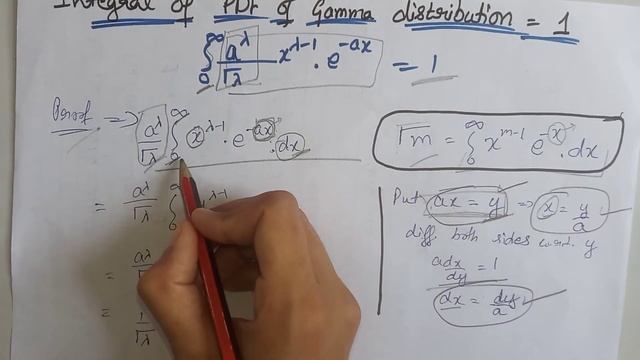 Integral of PDF of Gamma distribution = 1
∫₀^∞ a^λ/Γλ x^(λ-1) · e^(-ax) = 1
Proof => a^λ/Γλ ∫₀^∞ x^(λ-1) · e^(-ax) · dx
= a^λ/Γλ ∫₀^∞
= a^λ
= 1
Γm = ∫₀^∞ x^(m-1) e^(-x) · dx
Put ax = y => x = y/a
diff both sides w.r.t. y
adx/dy = 1
dx = dy/a